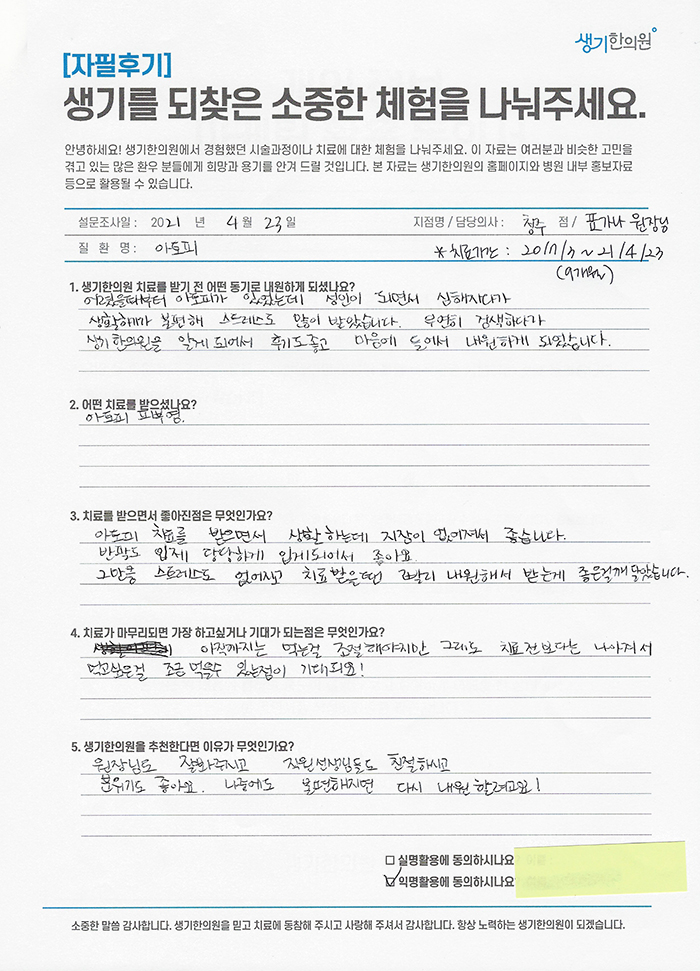 생기한의원
[자필후기]
생기를 되찾은 소중한 체험을 나눠주세요.
안녕하세요! 생기한의원에서 경험했던 시술과정이나 치료에 대한 체험을 나눠주세요. 이 자료는 여러분과 비슷한 고민을
겪고 있는 많은 환우 분들에게 희망과 용기를 안겨 드릴 것입니다. 본 자료는 생기한의원의 홈페이지와 병원 내부 홍보자료
등으로 활용될 수 있습니다.
설문조사일 : 2021 년 4 월 23 일 지점명 / 담당의사 : 청주 점 / 표가나 원장님
질 환 명 : 아토피 * 치료기간 : 20/7/3 ~ 21/4/23
(9개월)
1. 생기한의원 치료를 받기 전 어떤 동기로 내원하게 되셨나요?
어렸을때부터 아토피가 있었는데 성인이 되면서 심해지다가
생활하기가 불편해 스트레스도 많이 받았습니다. 우연히 검색하다가
생기한의원을 알게되어서 후기도좋고 마음에 들어서 내원하게 되었습니다.
2. 어떤 치료를 받으셨나요?
아토피 피부염.
3. 치료를 받으면서 좋아진점은 무엇인가요?
아토피 치료를 받으면서 생활하는데 지장이 없어져서 좋습니다.
반팔도 이제 당당하게 입게되어서 좋아요.
그만큼 스트레스도 없어지고 치료받을땐 빨리 내원해서 받는게 좋은걸 깨달았습니다.
4. 치료가 마무리되면 가장 하고싶거나 기대가 되는점은 무엇인가요?
아직까지는 먹는걸 조절해야지만 그래도 치료전보다는 나아져서
먹고싶은걸 조금 먹을수 있는점이 기대되요!
5. 생기한의원을 추천한다면 이유가 무엇인가요?
원장님도 잘봐주시고 직원선생님들도 친절하시고
분위기도 좋아요. 나중에도 불편해지면 다시 내원 할려고요!
실명활용에 동의하시나요
익명활용에 동의하시나요
소중한 말씀 감사합니다. 생기한의원을 믿고 치료에 동참해 주시고 사랑해 주셔서 감사합니다. 항상 노력하는 생기한의원이 되겠습니다.